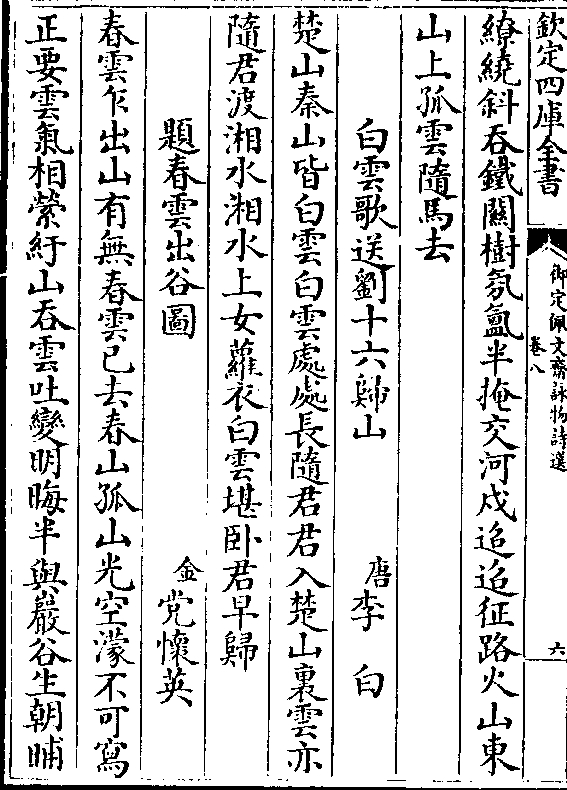 欽定四庫全書
御定佩文齋詠物詩選
卷八
六
繚繞斜吞鐵關樹氛氳半掩交河戍迢迢征路火山東
山上孤雲隨馬去
白雲歌送劉十六歸山
唐李白
楚山秦山皆白雲白雲處處長隨君君入楚山裏雲亦
隨君渡湘水湘水上女蘿衣白雲堪卧君早歸
題春雲出谷圖
金党懷英
春雲乍出山有無春雲已去春山孤山光空濛不可寫
正要雲氣相縈紆山吞雲吐變明晦半與巖谷生朝晡